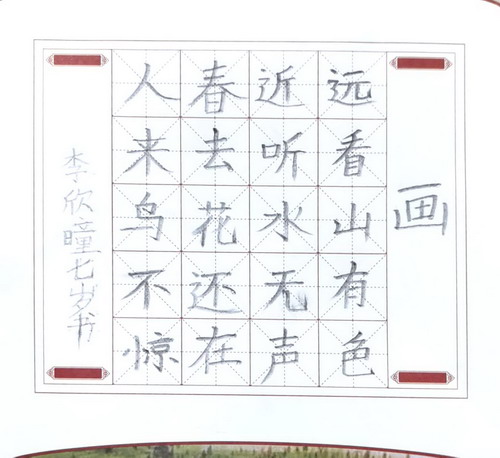 画
远看山有色
近听水无声
春去花还在
人来鸟不惊
李欣瞳七岁书